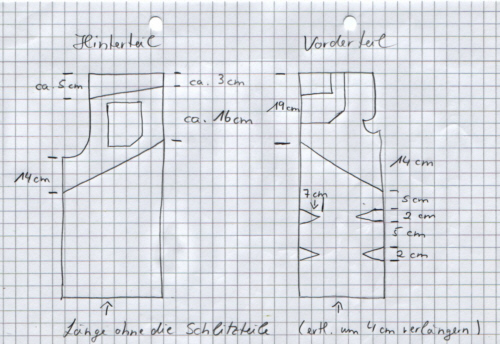 Hinterteil
Vorderteil
ca. 5 cm
ca. 3 cm
ca. 16 cm
14 cm
19 cm
14 cm
7 cm
5 cm
2 cm
5 cm
2 cm
Länge ohne die Schlitzteile
(evtl. um 4 cm verlängern)